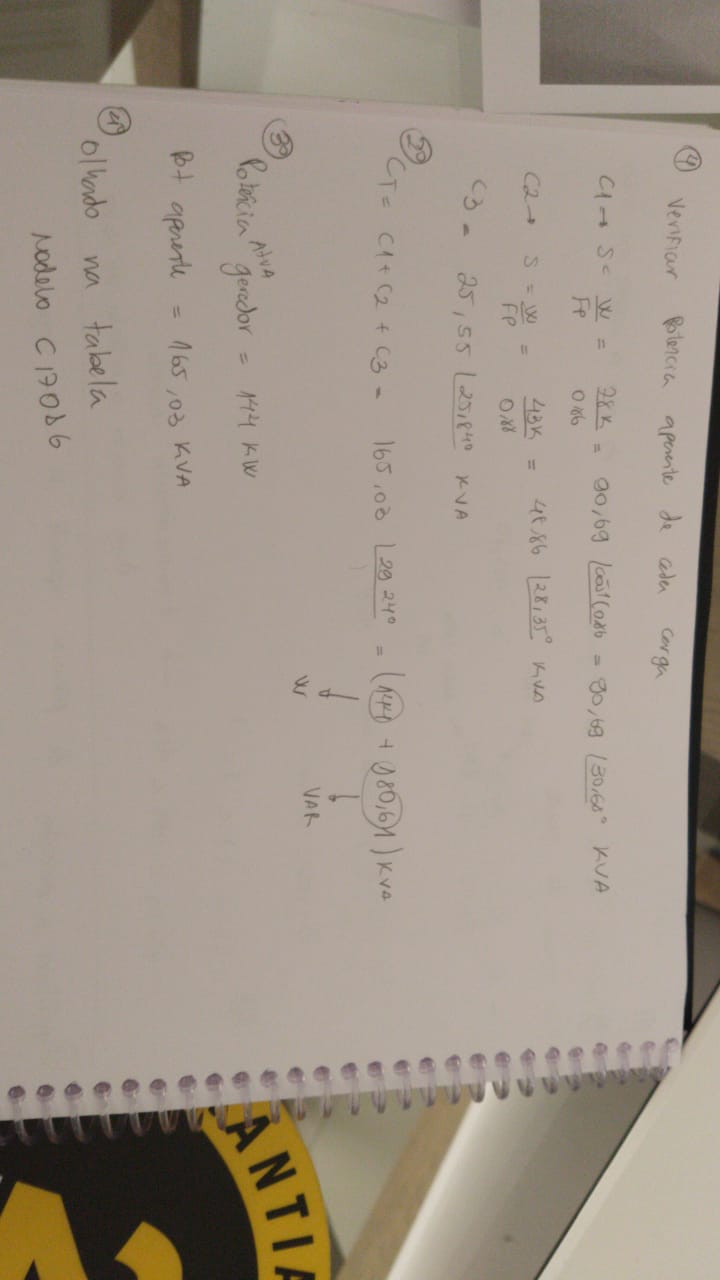 1 Verificar Potencia aparente de cada carga
C1 → S = W/FP = 78K/0,86 = 90,69 ∠cos⁻¹(0,86 = 90,69 ∠30,68° KVA
C2 → S = W/FP = 43K/0,88 = 48,86 ∠28,35° KVA
C3 = 25,55 ∠25,84° KVA
2º CT = C1 + C2 + C3 = 165,03 ∠29,24° = (144 + j80,61) KVA
W VAR
3º Potência Ativa gerador = 144 KW
Pot aparente = 165,03 KVA
4º Olhado na tabela
Modelo C170D6
ANTIA
2